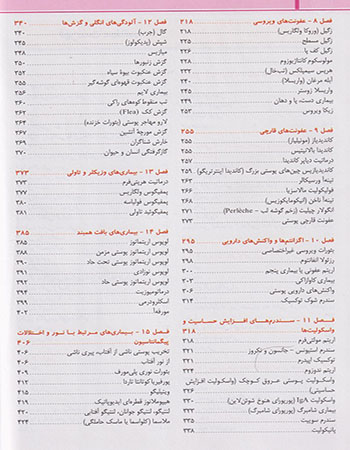 فصل ۸ - عفونت‌های ویروسی ۳۱۸
زگیل (وروکا ولگاریس) ۲۱۸
زگیل مسطح ۲۲۵
زگیل کف پا ۲۲۶
مولوسکوم کانتاژیوزوم ۲۲۸
هرپس سیمپلکس (تب‌خال) ۲۳۲
آبله مرغان (واریسلا) ۲۴۰
واریسلا زوستر ۲۴۵
بیماری دست، پا و دهان ۲۴۹
زیکا ویروس ۲۵۳
فصل ۹ - عفونت‌های قارچی ۲۵۵
کاندیدیاز (مونیلیاز) ۲۵۵
کاندیدا بالانیتیس ۲۵۵
درماتیت دیاپر کاندیدا ۲۵۷
کاندیدیازیس چین‌های پوستی بزرگ (کاندیدا اینترتریگو) ۲۵۹
تینه‌آ ورسیکالر ۲۶۳
فولیکولیت مالاسزیا ۲۶۶
تینه‌آ ناخن (انیکومایکوزیس) ۲۶۸
انگولار چیلیت (زخم گوشه لب - Perlèche) ۲۷۱
عفونت قارچی پوستی ۲۷۳
فصل ۱۰ - اگزانتم‌ها و واکنش‌های دارویی ۲۹۵
بثورات ویروسی غیراختصاصی ۲۹۵
رزئولا انفانتوم ۲۹۸
اریتم عفونی یا بیماری پنجم ۳۰۰
بیماری کاوازاکی ۳۰۳
واکنش‌های دارویی پوستی ۳۰۶
سندرم شوک توکسیک ۳۱۴
فصل ۱۱ - سندرم‌های افزایش حساسیت و
واسکولیت‌ها ۳۱۸
اریتم مولتی‌فرم ۳۱۸
سندرم استیونس - جانسون و نکروز ۳۲۱
توکسیک اپیدرم ۳۲۱
اریتم ندوزوم ۳۲۴
واسکولیت پوستی عروق کوچک (واسکولیت افزایش
حساسیتی) ۳۲۶
واسکولیت IgA (پورپورای هنوخ شوئن‌لاین) ۳۳۰
بیماری شامبرگ (پورپورای شامبرگ) ۳۳۳
سندرم سوییت ۳۳۵
پانیکولیت ۳۳۸
فصل ۱۲ - آلودگی‌های انگلی و گزش‌ها ۳۴۰
گال (جرب) ۳۴۰
شپش (پدیکولوز) ۳۴۵
میازیس ۳۴۸
گزش زنبورها ۳۵۰
گزش عنکبوت بیوه سیاه ۳۵۲
گزش عنکبوت قهوه‌ای گوشه‌گیر ۳۵۵
بیماری لایم ۳۵۶
تب منقوط کوه‌های راکی ۳۶۰
گزش کک (Flea) ۳۶۲
لارو مهاجر پوستی (بثورات خزنده) ۳۶۴
گزش مورچه آتشین ۳۶۷
خارش شناگران ۳۶۹
گازگرفتگی انسان و حیوان ۳۷۰
فصل ۱۳ - بیماری‌های وزیکلر و تاولی ۳۷۳
درماتیت هرپتی‌فرم ۳۷۳
پمفیگوس ولگاریس ۳۷۷
پمفیگوس فولیاسه ۳۸۰
پمفیگوئید تاولی ۳۸۱
فصل ۱۴ - بیماری‌های بافت همبند ۳۸۵
لوپوس اریتماتوز ۳۸۵
لوپوس اریتماتوز پوستی مزمن ۳۸۸
لوپوس اریتماتوز پوستی تحت حاد ۳۹۰
لوپوس نوزادی ۳۹۱
لوپوس اریتماتوز پوستی حاد ۳۹۲
درماتومیوزیت ۳۹۴
اسکلرودرمی ۳۹۹
مورفه‌آ ۴۰۲
فصل ۱۵ - بیماری‌های مرتبط با نور و اختلالات
پیگمانتاسیون ۴۰۶
تخریب پوستی ناشی از آفتاب، پیری ناشی
از نور آفتاب ۴۰۶
بثورات نوری پلی‌مورف ۴۰۹
پورفیریا کوتانئا تاردا ۴۱۲
ویتیلیگو ۴۱۵
هیپوملانوز قطره‌ای ایدیوپاتیک ۴۱۹
لنتیگو، لنتیگو جوانان، لنتیگو آفتابی ۴۲۰
ملاسما (کلواسما یا ماسک حاملگی) ۴۲۴